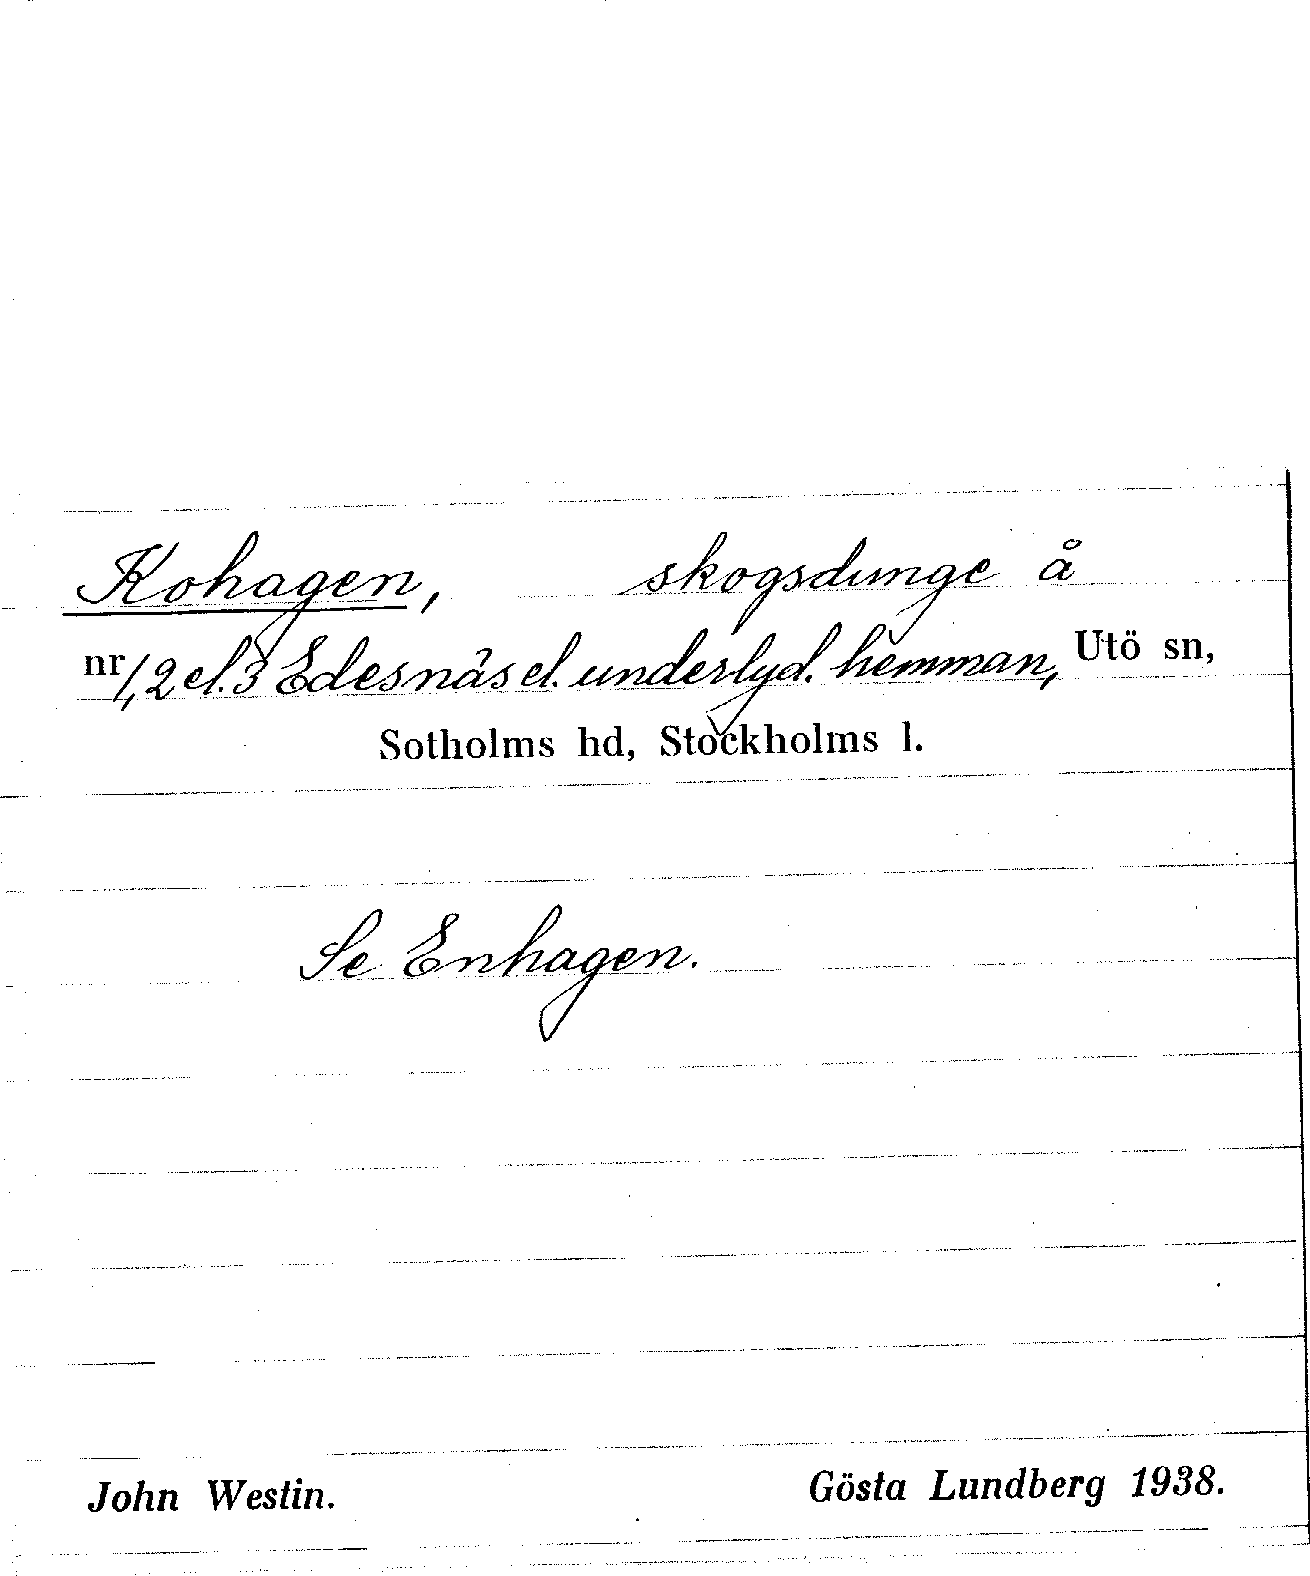 Kohagen, skogsdunge å
nr 1, 2 el. 3 Edesnäs el. underlyd. hemman, Utö sn,
Sotholms hd, Stockholms l.
Se Enhagen.
John Westin. Gösta Lundberg 1938.